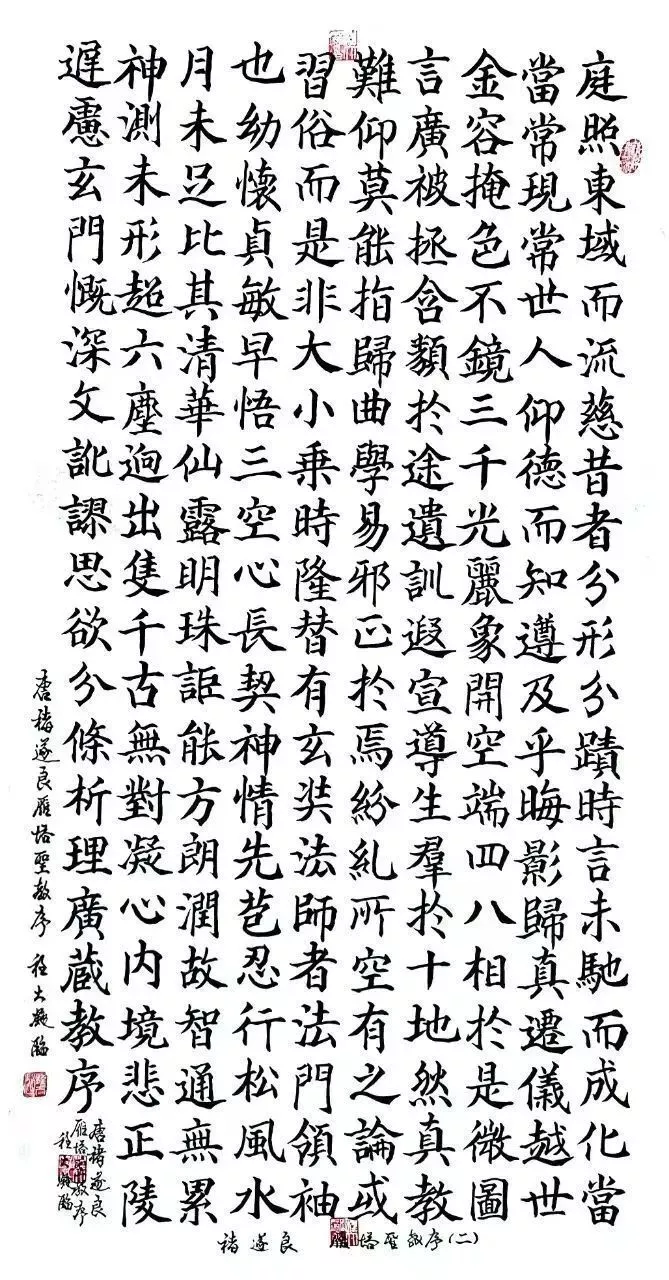 庭照東域而流慈昔者分形分蹟時言未馳而成化當
當常現常世人仰德而知遵及乎晦影歸真遷儀越世
金容掩色不鏡三千光麗象開空端四八相於是微圖
言廣被拯含類於途遺訓遐宣導生羣於十地然真教
難仰莫能指歸曲學易邪正於焉紛糺所空有之論或
習俗而是非大小乘時隆替有玄奘法師者法門領袖
也幼懷貞敏早悟三空心長契神情先苞忍行松風水
月未足比其清華仙露明珠詎能方朗潤故智通無累
神測未形超六塵迥出隻千古無對凝心內境悲正陵
遲慮玄門慨深文訛謬思欲分條析理廣藏教序
唐褚遂良雁塔聖教序 程大臨
唐褚遂良
雁塔教序
程臨
褚遂良 塔聖教序(二)